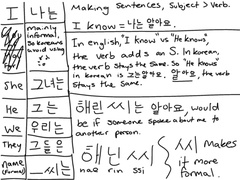 I
나는
Making Sentences, Subject > Verb.
I know = 나는 알아요.
mainly
informal,
so Koreans
would
using
In english, "I know" vs "He knows"
the verb adds an S. In korean,
the verb Stays the Same. So "He knows"
in korean is 그는 알아요. 알아요, the verb
stays the Same.
She
그녀는
He
그는
해린 씨는 알아요, would
be if someone spoke about me to
another person.
We
우리는
They
그들은
name
(formal)
__씨는
해린 씨
hae rin ssi
씨 makes
it more
formal.